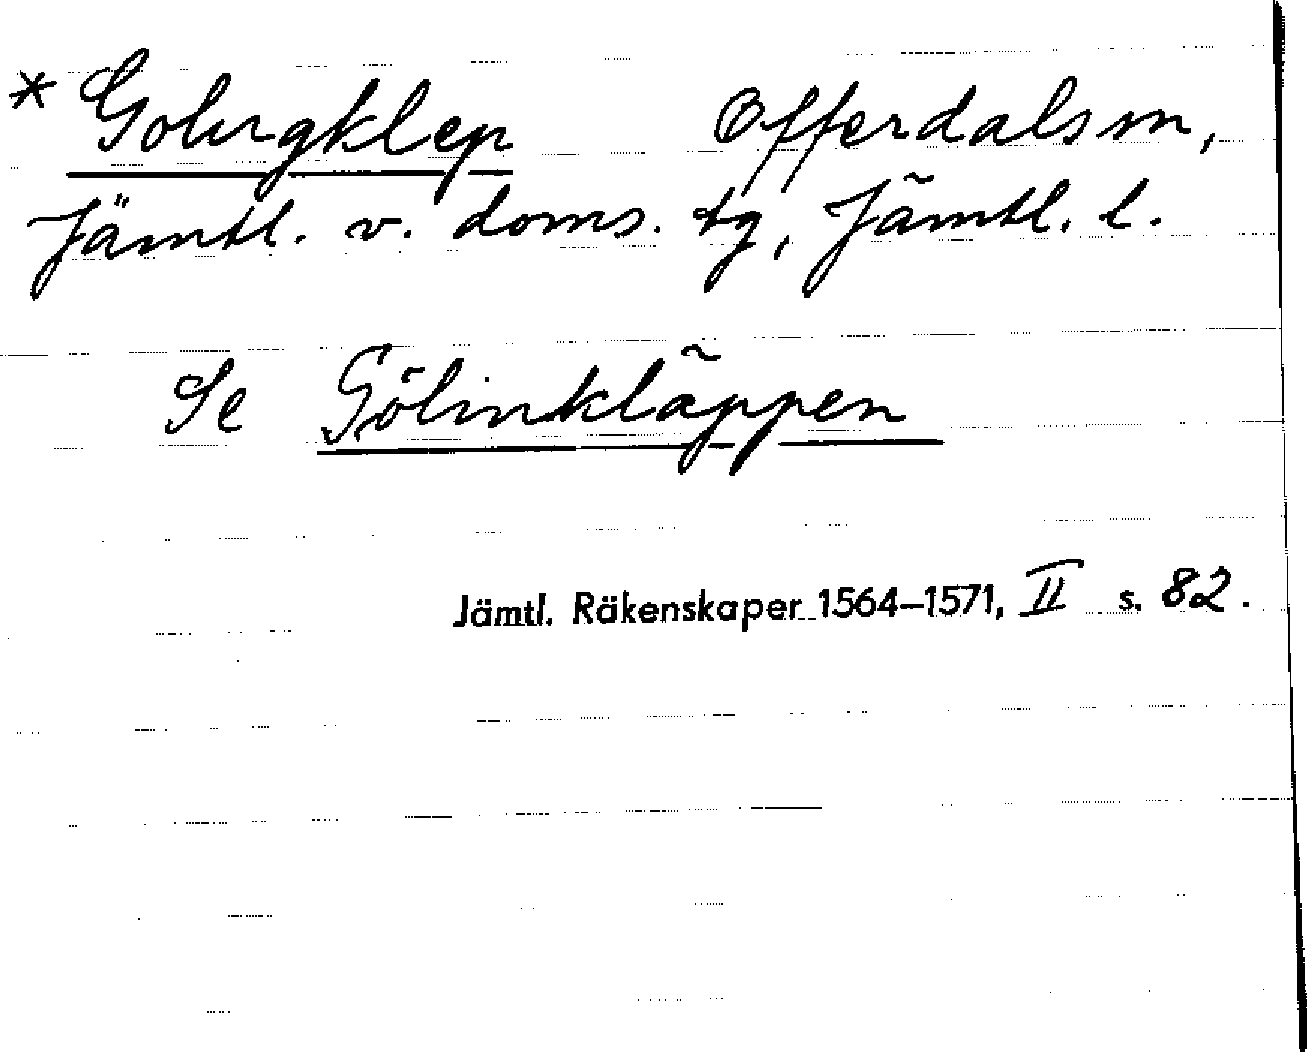 * Golingklep Offerdals sn,
Jämtl. v. doms. tg, Jämtl. l.
Se Gölinkläppen
Jämtl. Räkenskaper 1564–1571, II s. 82.